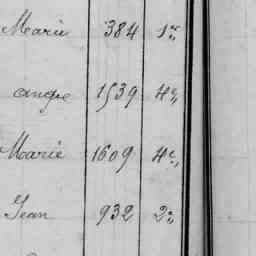 Marie 384 1re
ange 1539 4e
Marie 1609 4e
Jean 932 2e